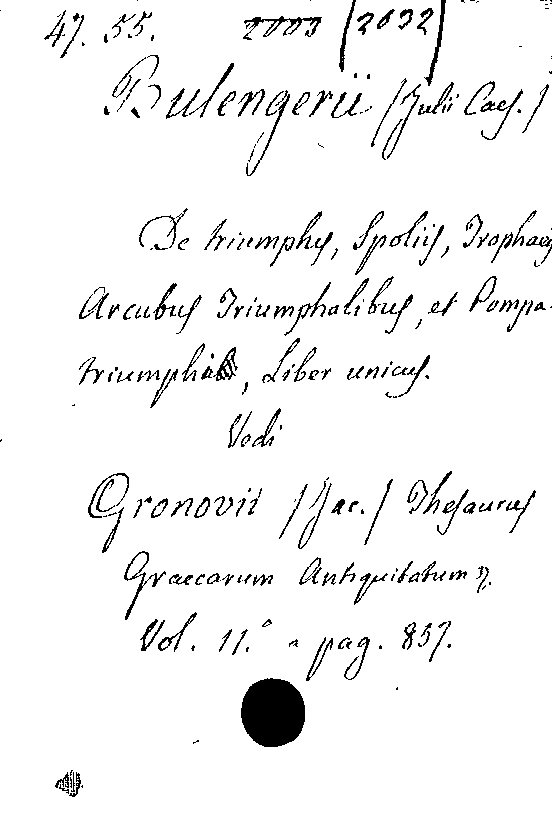 47. 55. 2003 (2032)
Bulengerii /Julii Caes./
De triumphis, Spoliis, Trophaeis
Arcubus Triumphalibus, et Pompa
triumphali, Liber unicus.
Vedi
Gronovii /Jac./ Thesaurus
Graecarum Antiquitatum
Vol. 11.° a pag. 857.